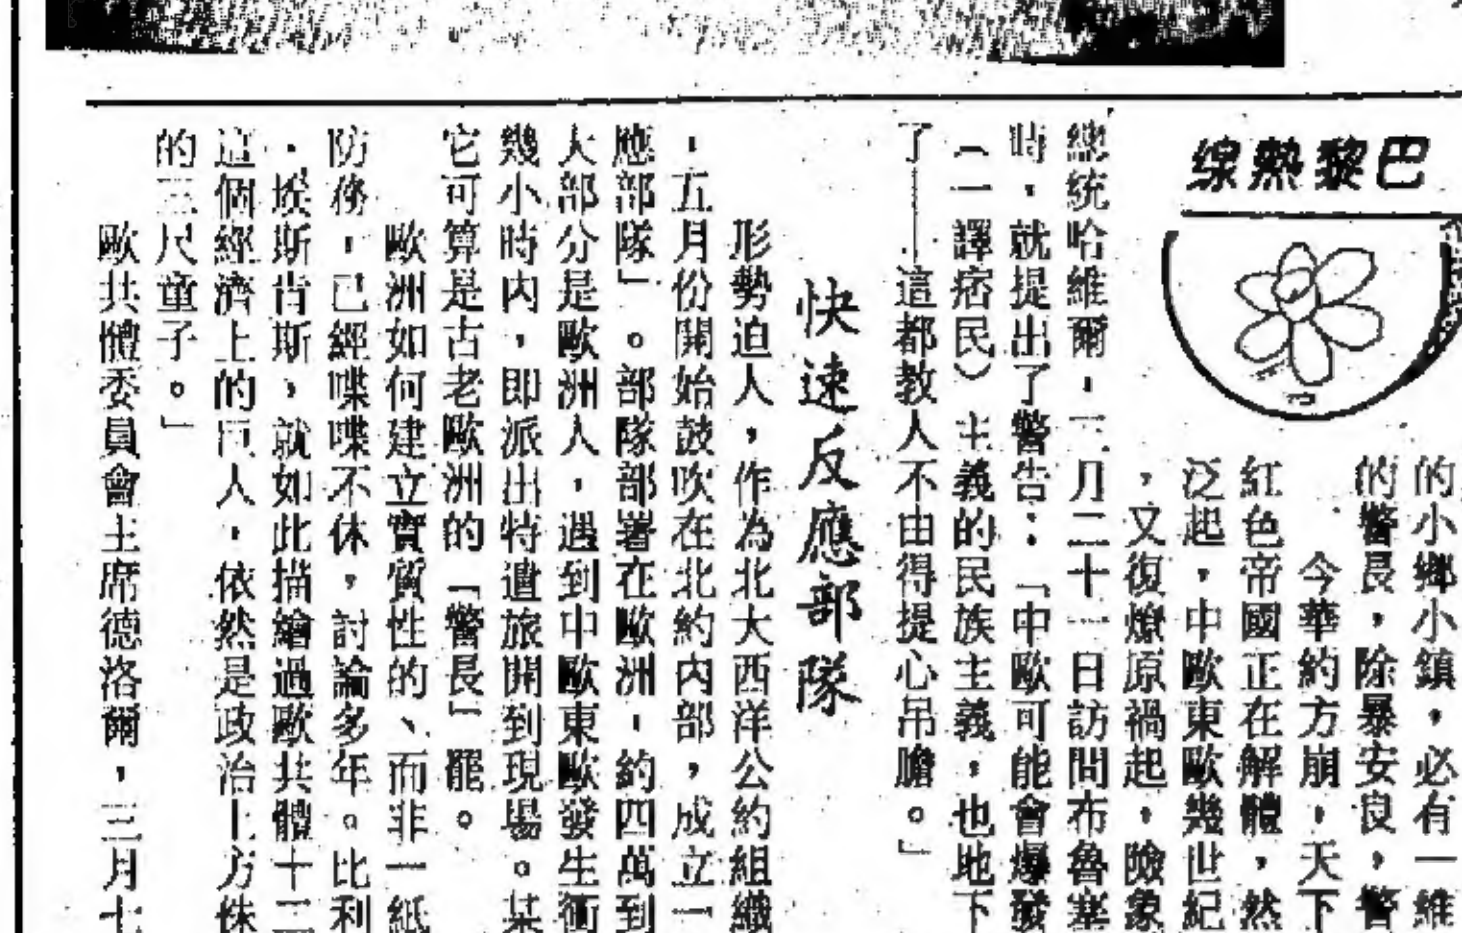 巴黎熱線
的小鄉小鎮，必有一維
的警長，除暴安良，警
今華約方崩，天下
紅色帝國正在解體，然
泛起，中歐東歐幾世紀
，又復燎原禍起，險象
總統哈維爾，三月二十一日訪問布魯塞
時，就提出了警告：「中歐可能會爆發
（一譯痞民）主義的民族主義，也地下
了——這都教人不由得提心吊膽。」
快速反應部隊
形勢迫人，作為北大西洋公約組織
，五月份開始鼓吹在北約內部，成立一
應部隊」。部隊部署在歐洲，約四萬到
大部分是歐洲人，遇到中歐東歐發生衝
幾小時內，即派出特遣旅開到現場。某
它可算是古老歐洲的「警長」罷。
歐洲如何建立實質性的、而非一紙
防務，已經喋喋不休，討論多年。比利
，埃斯肯斯，就如此描繪過歐共體十二
這個經濟上的巨人，依然是政治上方侏
的三尺童子。」
歐共體委員會主席德洛爾，三月七